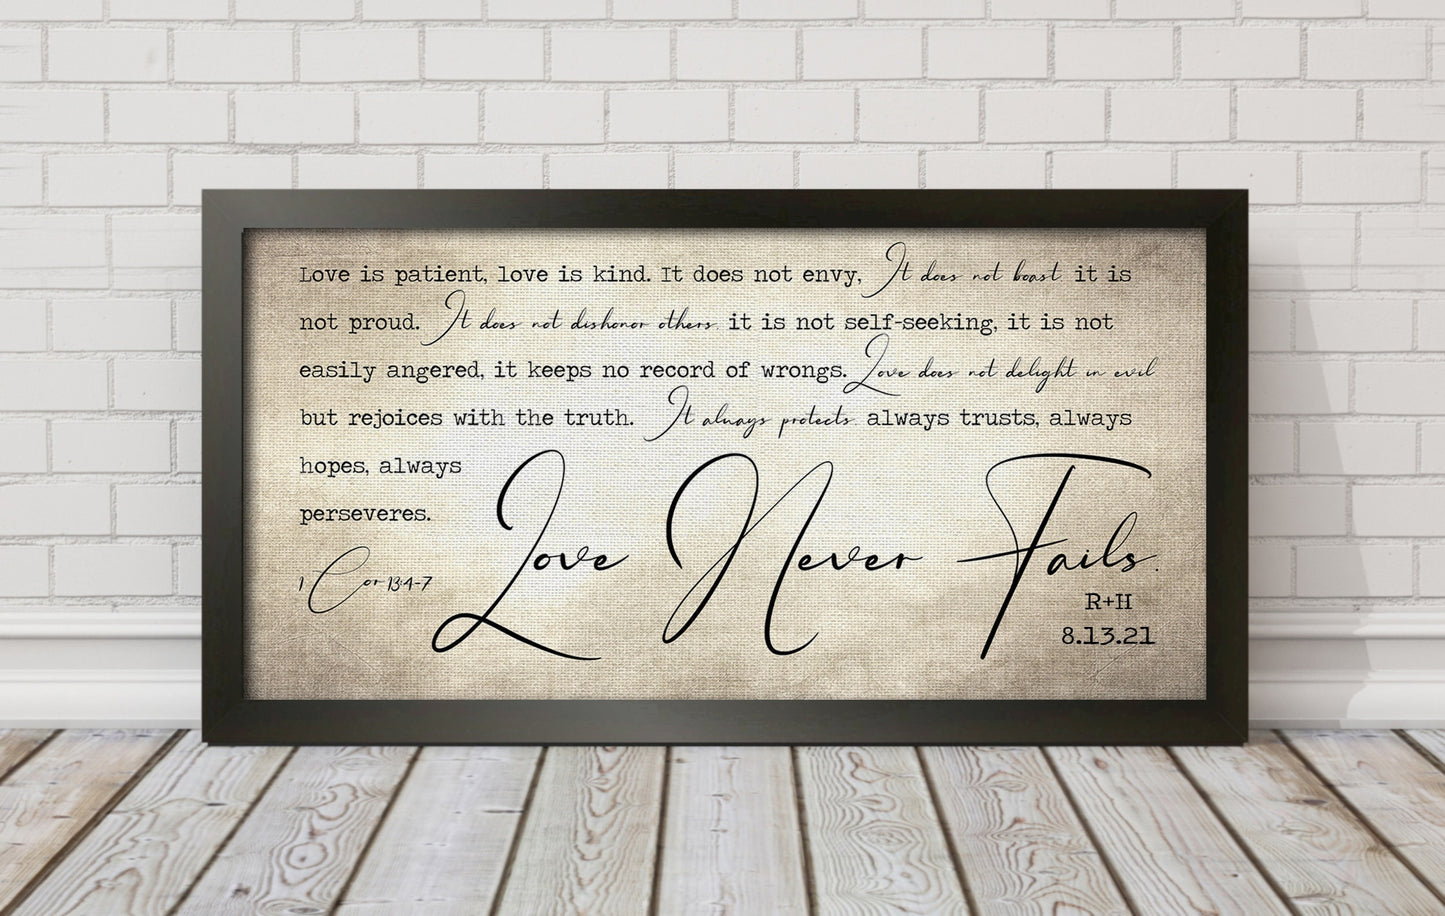 Love is patient, love is kind. It does not envy, It does not boast it is
not proud. It does not dishonor others. it is not self-seeking, it is not
easily angered, it keeps no record of wrongs. Love does not delight in evil
but rejoices with the truth. It always protects. always trusts, always
hopes, always
perseveres.
Love Never Fails.
1 Cor 13:4-7
R+H
8.13.21